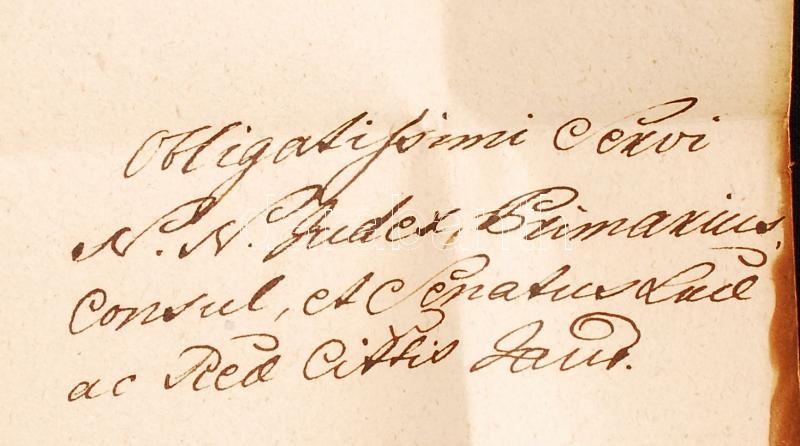 Obligatissimi Servi
N. N. Judex, Primarius,
Consul, et Senatus Lræ
ac Reæ Cittis Jaur.